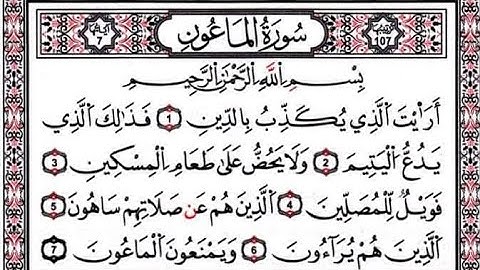 آياتها 7 سُورَةُ الْمَاعُونِ ترتيبها 107
بِسْمِ اللَّهِ الرَّحْمَٰنِ الرَّحِيمِ
أَرَأَيْتَ الَّذِي يُكَذِّبُ بِالدِّينِ 1 فَذَٰلِكَ الَّذِي
يَدُعُّ الْيَتِيمَ 2 وَلَا يَحُضُّ عَلَىٰ طَعَامِ الْمِسْكِينِ 3
فَوَيْلٌ لِلْمُصَلِّينَ 4 الَّذِينَ هُمْ عَن صَلَاتِهِمْ سَاهُونَ 5
الَّذِينَ هُمْ يُرَاءُونَ 6 وَيَمْنَعُونَ الْمَاعُونَ 7